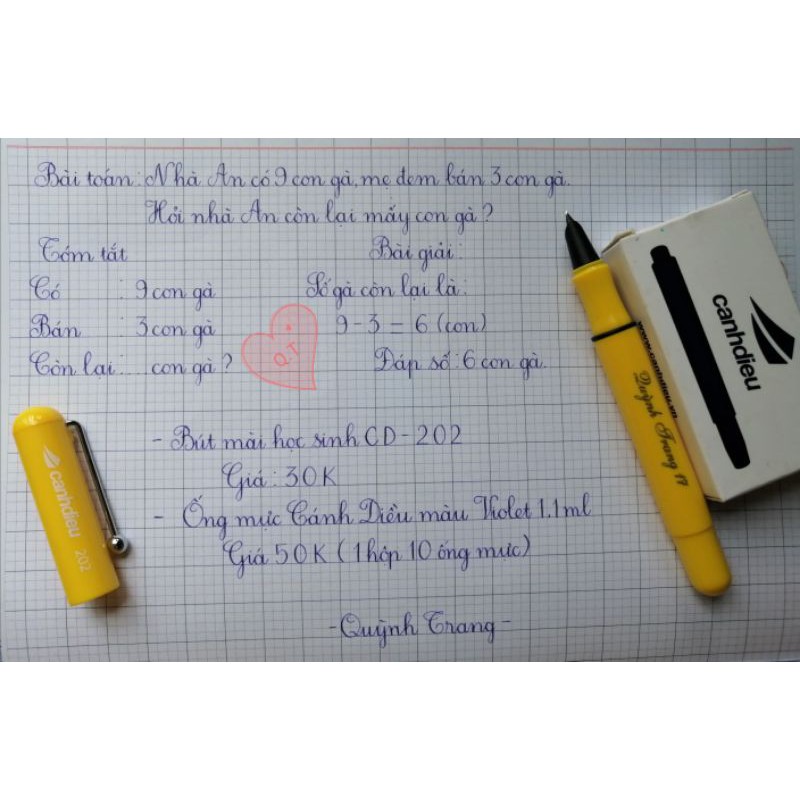 Bài toán: Nhà An có 9 con gà, mẹ đem bán 3 con gà.
Hỏi nhà An còn lại mấy con gà?
Tóm tắt
Có : 9 con gà
Bán : 3 con gà
Còn lại: .... con gà?
Bài giải:
Số gà còn lại là:
9 - 3 = 6 (con)
Đáp số: 6 con gà.
Q.T
- Bút mài học sinh CD - 202
Giá: 30K
- Ống mực Cánh Diều màu Violet 1.1ml
Giá 50K (1 hộp 10 ống mực)
- Quỳnh Trang -
canhdieu 202
www.canhdieu.vn
Quỳnh Trang
canhdieu